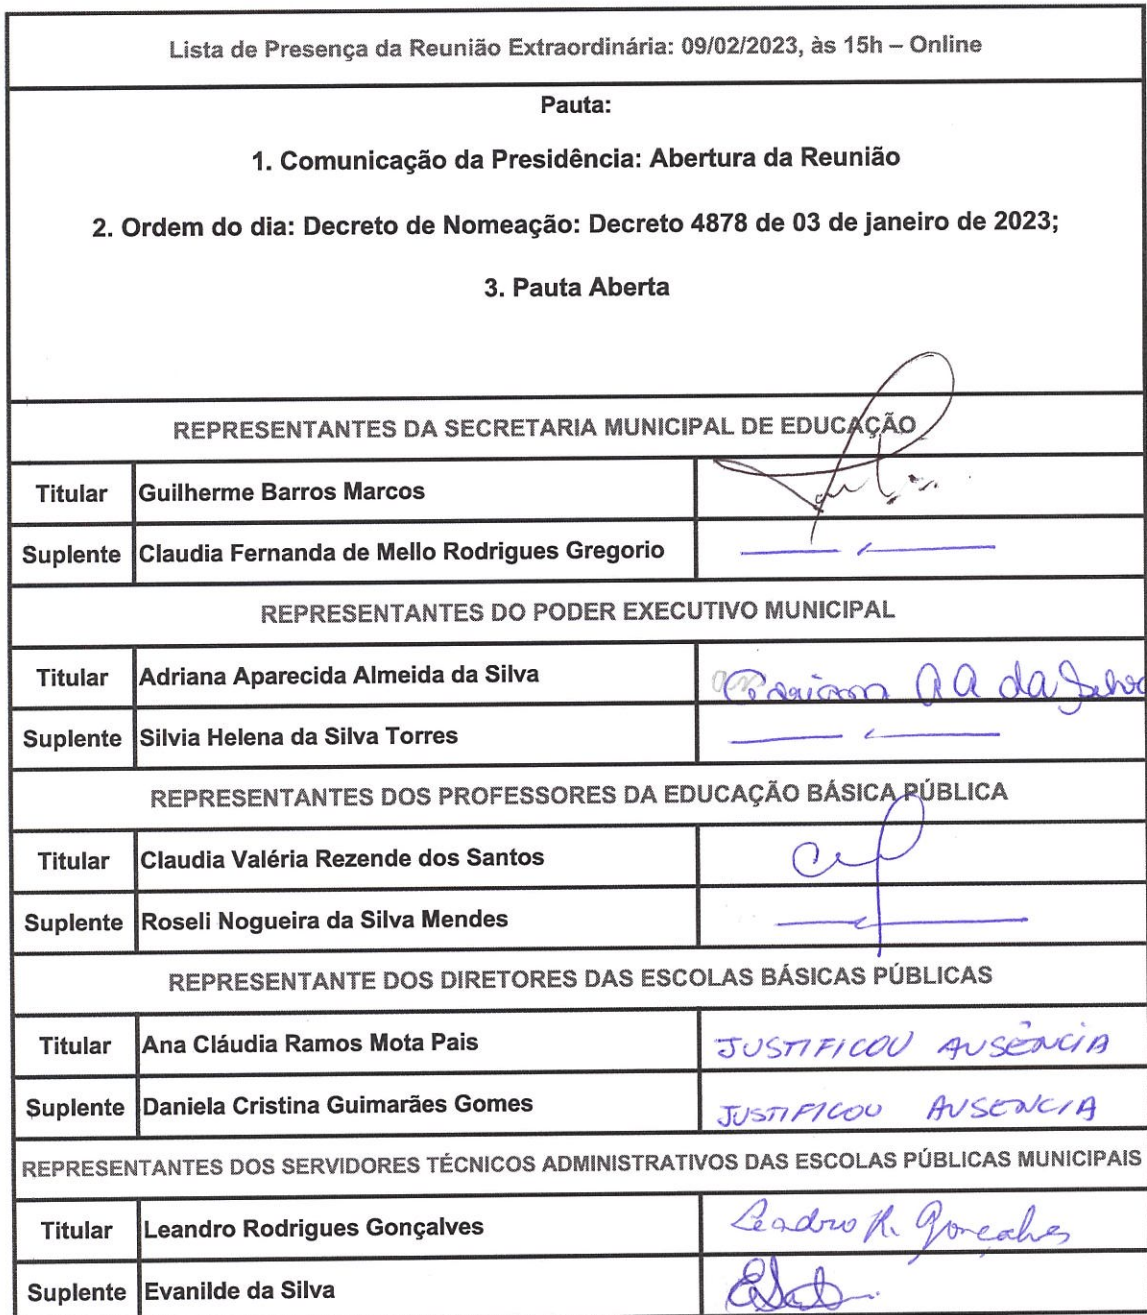 Lista de Presença da Reunião Extraordinária: 09/02/2023, às 15h – Online
Pauta:
1. Comunicação da Presidência: Abertura da Reunião
2. Ordem do dia: Decreto de Nomeação: Decreto 4878 de 03 de janeiro de 2023;
3. Pauta Aberta
REPRESENTANTES DA SECRETARIA MUNICIPAL DE EDUCAÇÃO
Titular Guilherme Barros Marcos
Suplente Claudia Fernanda de Mello Rodrigues Gregorio
REPRESENTANTES DO PODER EXECUTIVO MUNICIPAL
Titular Adriana Aparecida Almeida da Silva A A da Silva
Suplente Silvia Helena da Silva Torres
REPRESENTANTES DOS PROFESSORES DA EDUCAÇÃO BÁSICA PÚBLICA
Titular Claudia Valéria Rezende dos Santos
Suplente Roseli Nogueira da Silva Mendes
REPRESENTANTE DOS DIRETORES DAS ESCOLAS BÁSICAS PÚBLICAS
Titular Ana Cláudia Ramos Mota Pais JUSTIFICOU AUSÊNCIA
Suplente Daniela Cristina Guimarães Gomes JUSTIFICOU AUSENCIA
REPRESENTANTES DOS SERVIDORES TÉCNICOS ADMINISTRATIVOS DAS ESCOLAS PÚBLICAS MUNICIPAIS
Titular Leandro Rodrigues Gonçalves Leandro R. Gonçalves
Suplente Evanilde da Silva